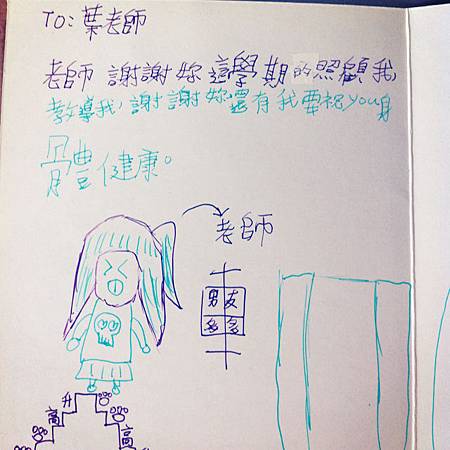 TO: 葉老師
老師 謝謝妳這學期的照顧我,
教導我,謝謝妳還有我要祝you身
體健康。
老師
男友
多多
升
高
高